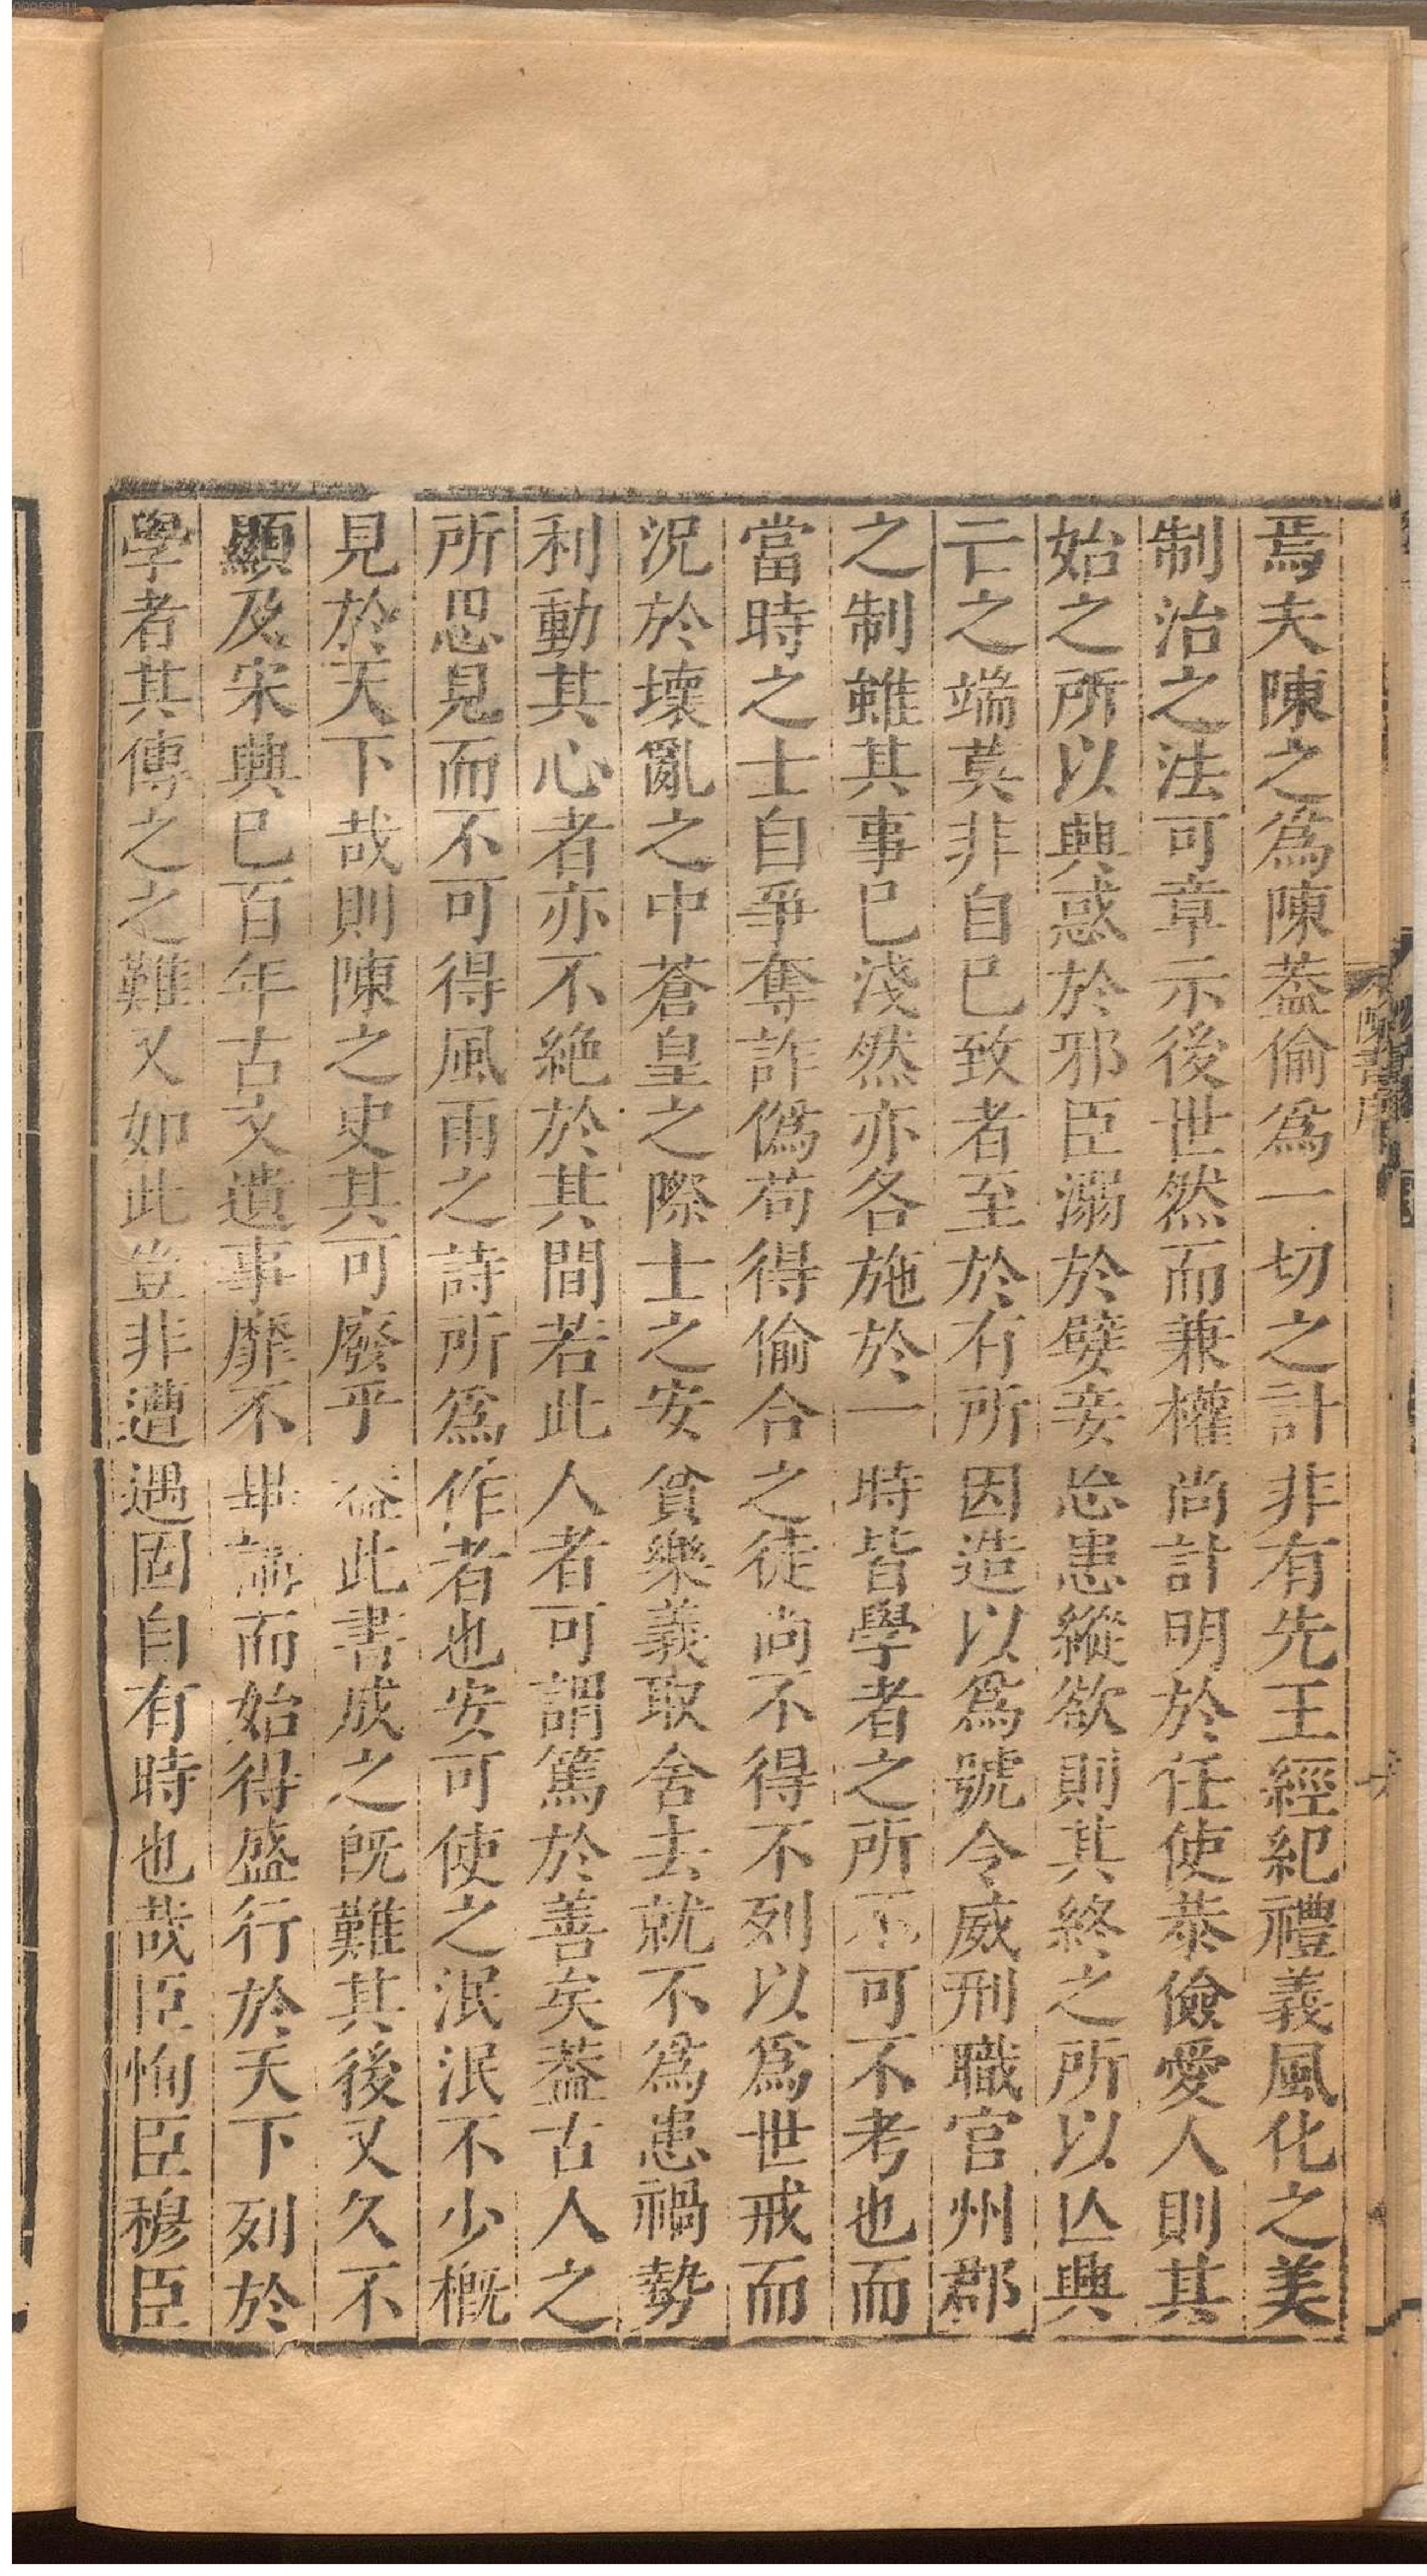 焉夫陳之為陳葢偷為一切之計非有先王經紀禮義風化之美
制治之法可章示後世然而兼權尚計明於任使恭儉愛人則其
始之所以興惑於邪臣溺於嬖妾忘患縱欲則其終之所以亾興
亡之端莫非自已致者至於有所因造以為號令威刑職官州郡
之制雖其事已淺然亦各施於一時皆學者之所不可不考也而
當時之士自爭奪詐偽苟得偷合之徒尚不得不列以為世戒而
況於壞亂之中蒼皇之際士之安貧樂義取舍去就不為患禍勢
利動其心者亦不絶於其間若此人者可謂篤於善矣葢古人之
所思見而不可得風雨之詩所為作者也安可使之泯泯不少概
見於天下哉則陳之史其可廢乎葢此書成之既難其後又久不
顯及宋興已百年古文遺事靡不畢講而始得盛行於天下列於
學者其傳之之難又如此豈非遭遇固自有時也哉臣恂臣穆臣
陳書序